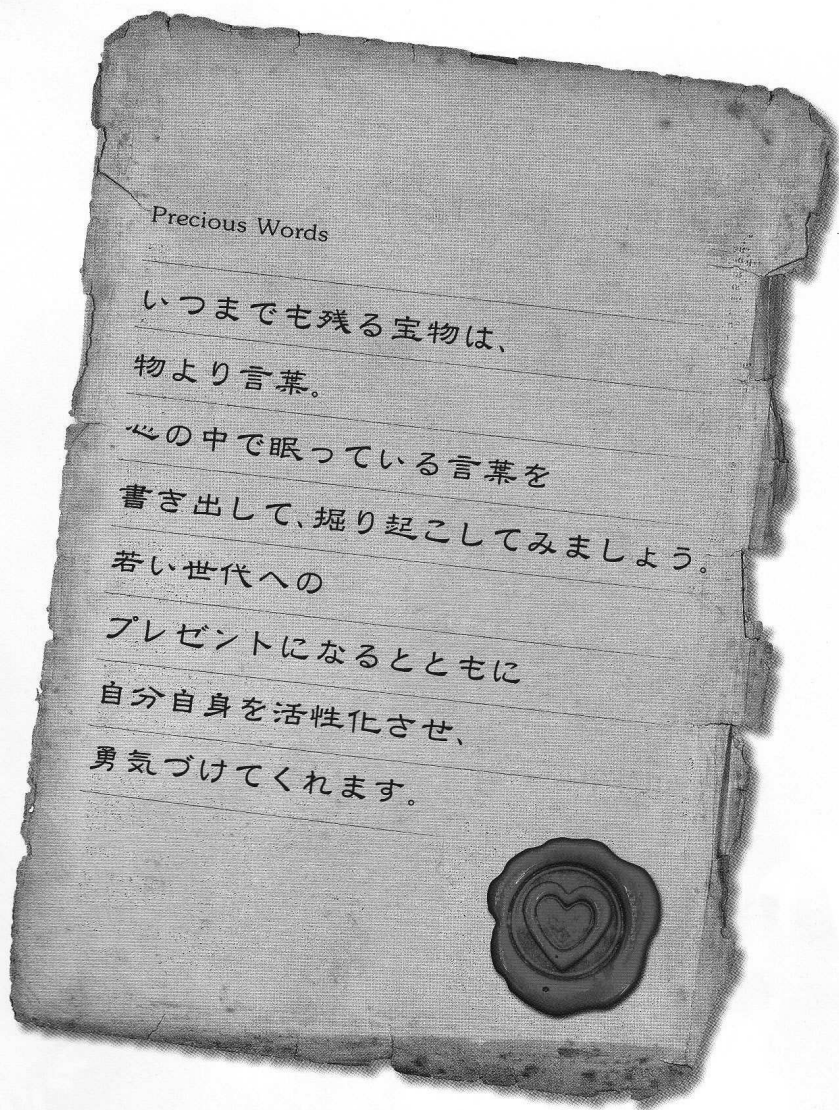 Precious Words
いつまでも残る宝物は、
物より言葉。
心の中で眠っている言葉を
書き出して、掘り起こしてみましょう。
若い世代への
プレゼントになるとともに
自分自身を活性化させ、
勇気づけてくれます。